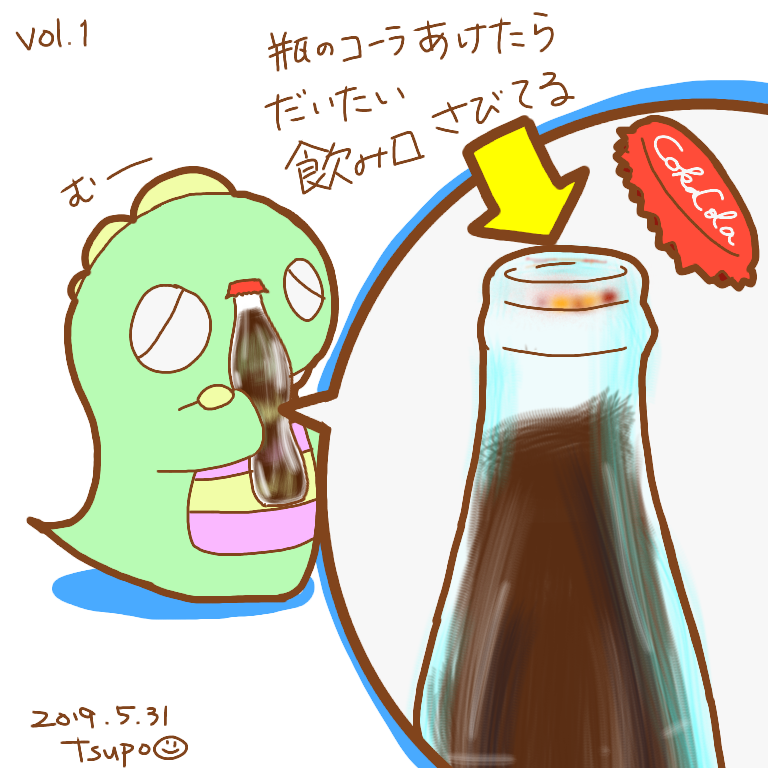 vol.1
瓶のコーラあけたら
だいたい
飲み口 さびてる
むー
CokaCola
2019.5.31
Tsupo